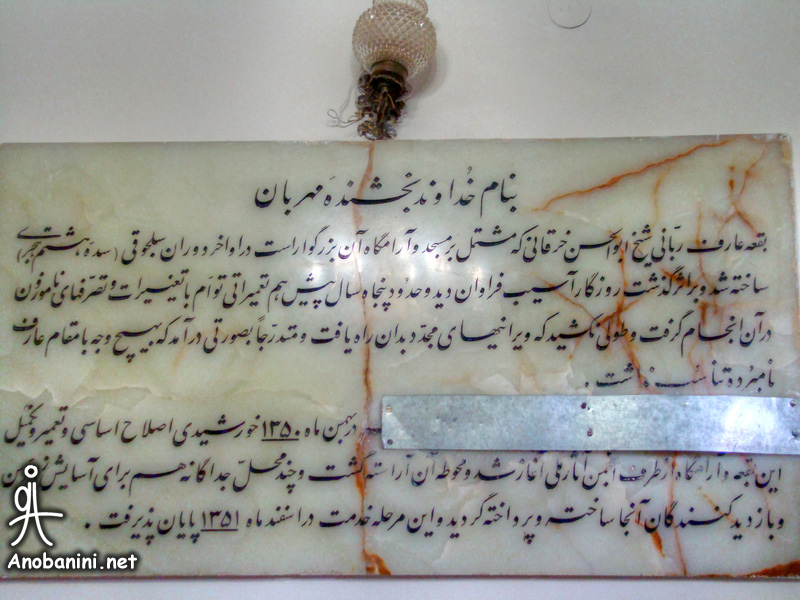 بنام خداوند بخشندهٔ مهربان
بقعه عارف ربّانی شیخ ابوالحسن خرقانی که مشتمل بر مسجد و آرامگاه آن بزرگوار است در اواخر دوران سلجوقی (سدهٔ هشتم هجری)
ساخته شد و بر اثر گذشت روزگار آسیب فراوان دید و حدود پنجاه سال پیش هم تعمیراتی توام با تغییرات و تصرّفهای ناموزون
در آن انجام گرفت و طولی نکشید که ویرانیهای مجدّد بدان راه یافت و متدرّجاً بصورتی در آمد که بهیچ وجه با مقام عارف
نامبرده تناسب نداشت .
در بهمن ماه ۱۳۵۰ خورشیدی اصلاح اساسی و تعمیر و تکمیل
این بقعه و آرامگاه از طرف انجمن آثار ملّی آغاز شد و محوطه آن آراسته گشت و چند محلّ جداگانه هم برای آسایش زائرین
و بازدید کنندگان آنجا ساخته و پرداخته گردید و این مرحله خدمت در اسفند ماه ۱۳۵۱ پایان پذیرفت .
Anobanini.net